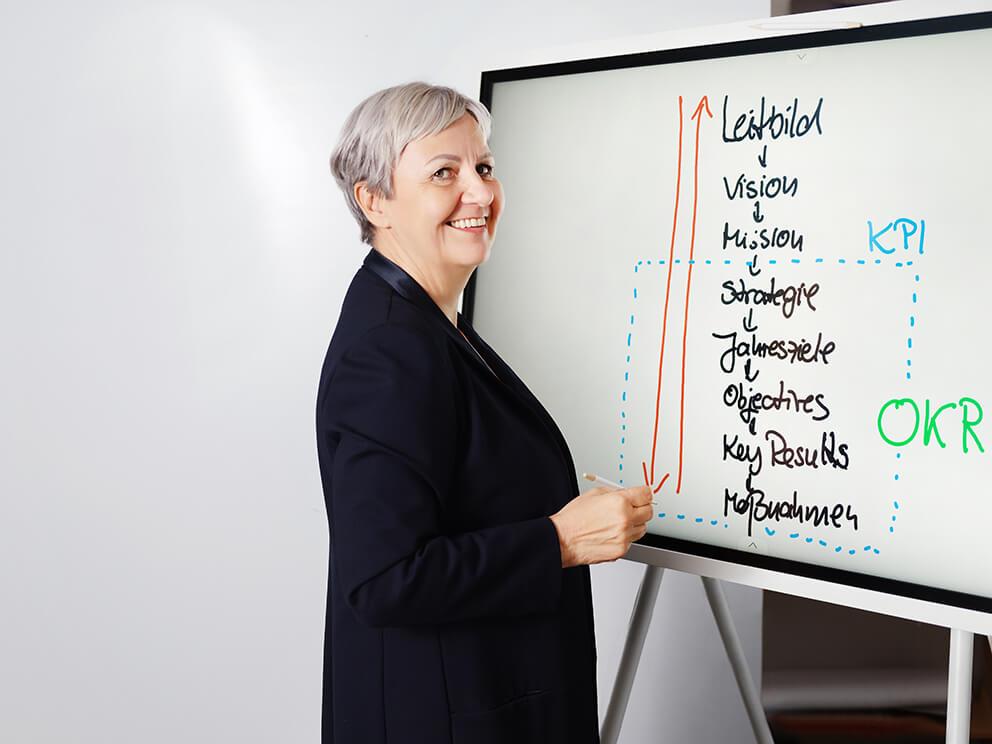 Leitbild
Vision
Mission
KPI
Strategie
Jahresziele
Objectives
OKR
Key Results
Maßnahmen